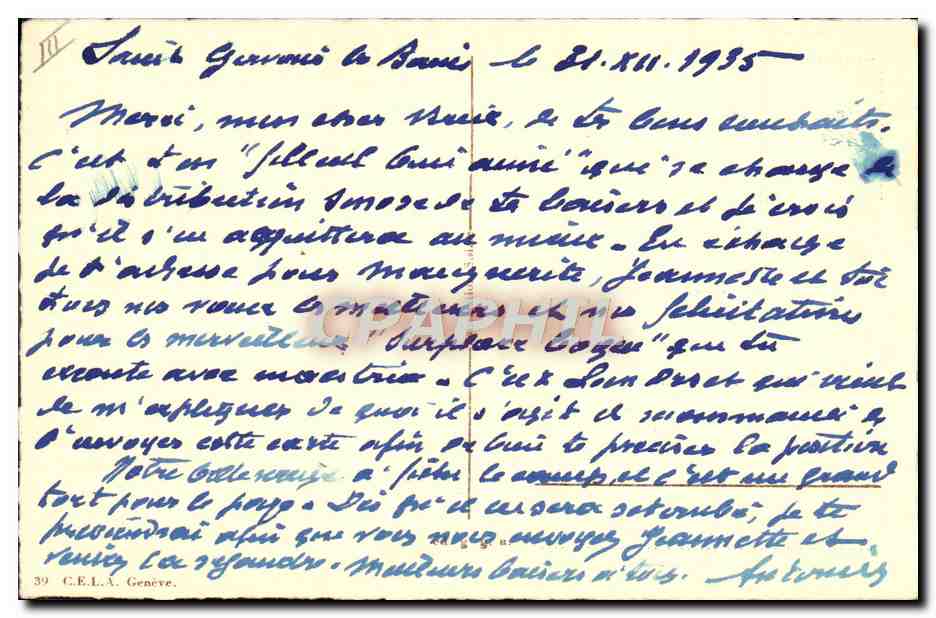 III
Saint Gervais les Bains le 31.XII.1935
Merci, mon cher vieux, de tes bons souhaits.
C'est ton "filleul bien aimé" qui se charge de
la distribution de tes baisers et je crois
qu'il s'en acquittera au mieux. En échange
je t'adresse pour Marguerite, Jeannette et toi
tous nos voeux les meilleurs et nos félicitations
pour le merveilleux "surplace" que tu
exécute avec maestria. C'est qui vient
de m'expliquer de quoi il s'agit et recommande
d'envoyer cette carte afin de bien te préciser la position
Notre belle neige a fichu le camp, et c'est un grand
tort pour le pays. Dès qu'il en sera retombé, je te
préviendrai afin que vous nous envoyez Jeannette et
veniez la rejoindre. Meilleurs baisers à tous. Antonin
CPAPHIL
39 C.E.L.A. Genève.